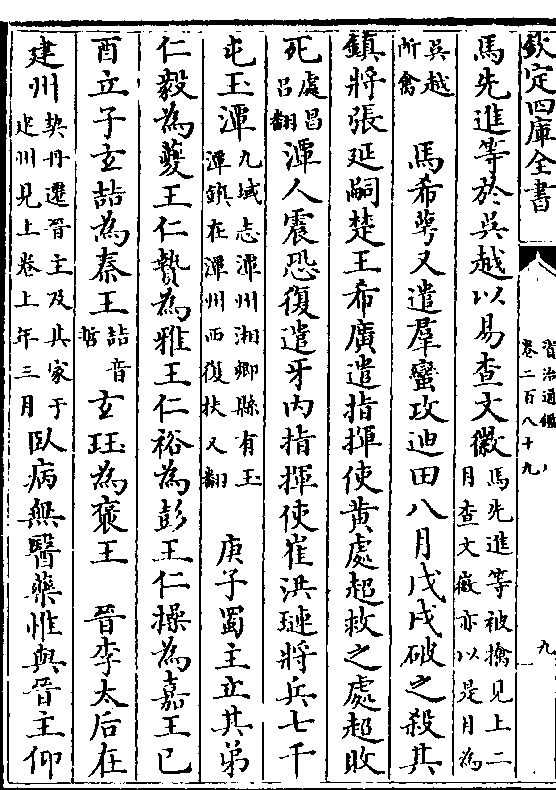 欽定四庫全書
資治通鑑
卷二百八十九
九
馬先進等於吳越以易查文徽馬先進等被擒見上二月查文徽亦以是月為
吳越所禽 馬希萼又遣羣蠻攻迪田八月戊戌破之殺其
鎮將張延嗣楚王希廣遣指揮使黃處超救之處超敗
死處昌呂翻潭人震恐復遣牙內指揮使崔洪璉將兵七千
屯玉潭九域志潭州湘鄉縣有玉潭鎮在潭州西復扶又翻 庚子蜀主立其弟
仁毅為夔王仁贄為雅王仁裕為彭王仁操為嘉王已
酉立子玄喆為秦王喆音哲玄珏為褒王 晉李太后在
建州契丹遷晉主及其家于建州見上卷上年三月臥病無醫藥惟與晉主仰